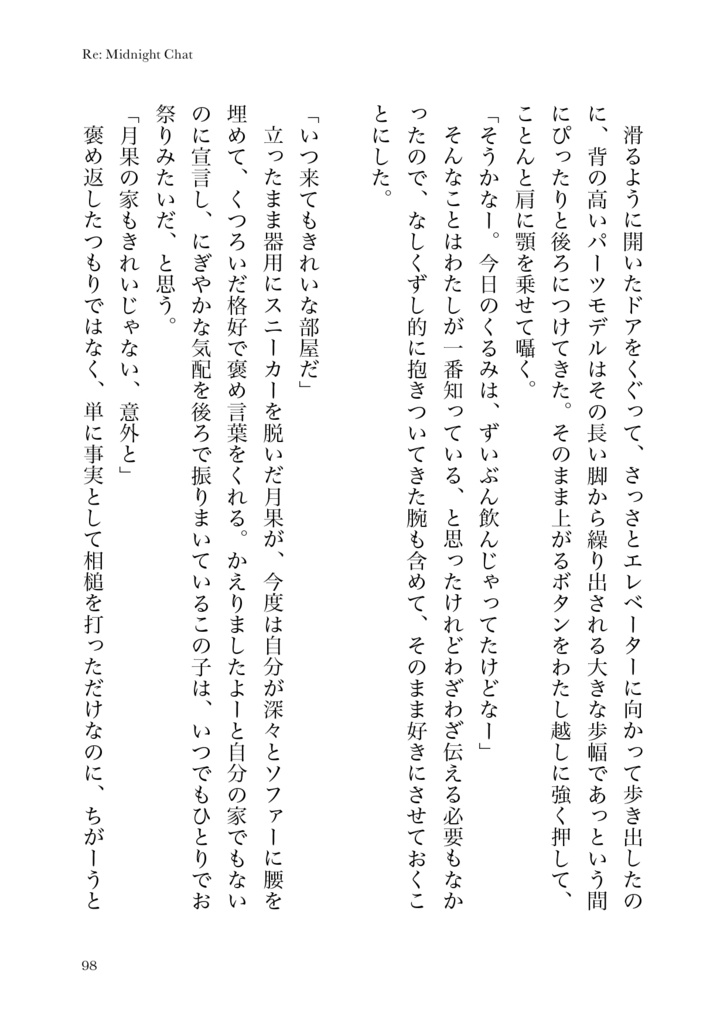 Re: Midnight Chat
　滑るように開いたドアをくぐって、さっさとエレベーターに向かって歩き出したの
に、背の高いパーツモデルはその長い脚から繰り出される大きな歩幅であっという間
にぴったりと後ろにつけてきた。そのまま上がるボタンをわたし越しに強く押して、
ことんと肩に顎を乗せて囁く。
「そうかなー。今日のくるみは、ずいぶん飲んじゃってたけどなー」
　そんなことはわたしが一番知っている、と思ったけれどわざわざ伝える必要もなか
ったので、なしくずし的に抱きついてきた腕も含めて、そのまま好きにさせておくこ
とにした。
「いつ来てもきれいな部屋だ」
　立ったまま器用にスニーカーを脱いだ月果が、今度は自分が深々とソファーに腰を
埋めて、くつろいだ格好で褒め言葉をくれる。かえりましたよーと自分の家でもない
のに宣言し、にぎやかな気配を後ろで振りまいているこの子は、いつでもひとりでお
祭りみたいだ、と思う。
「月果の家もきれいじゃない、意外と」
　褒め返したつもりではなく、単に事実として相槌を打っただけなのに、ちがーうと
98